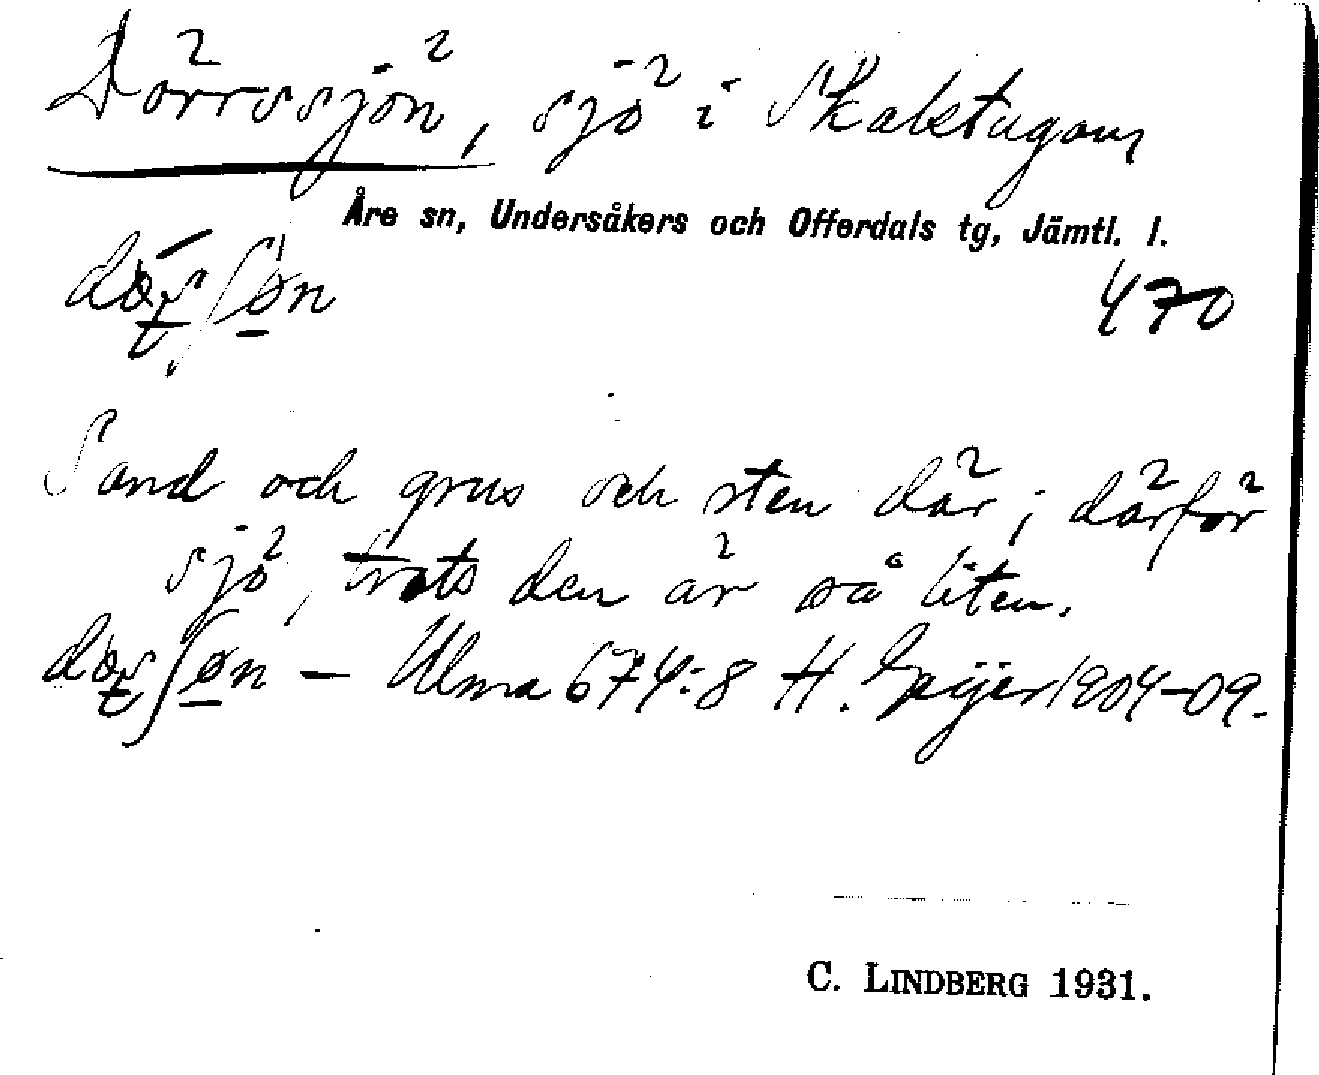 Dörrssjön, sjö i Skalstugan
Åre sn, Undersåkers och Offerdals tg, Jämtl. l.
470
Sand och grus och sten där; därför
sjö, trots den är så liten.
— Ulma 674:8 H. Geijer 1904–09.
C. LINDBERG 1931.